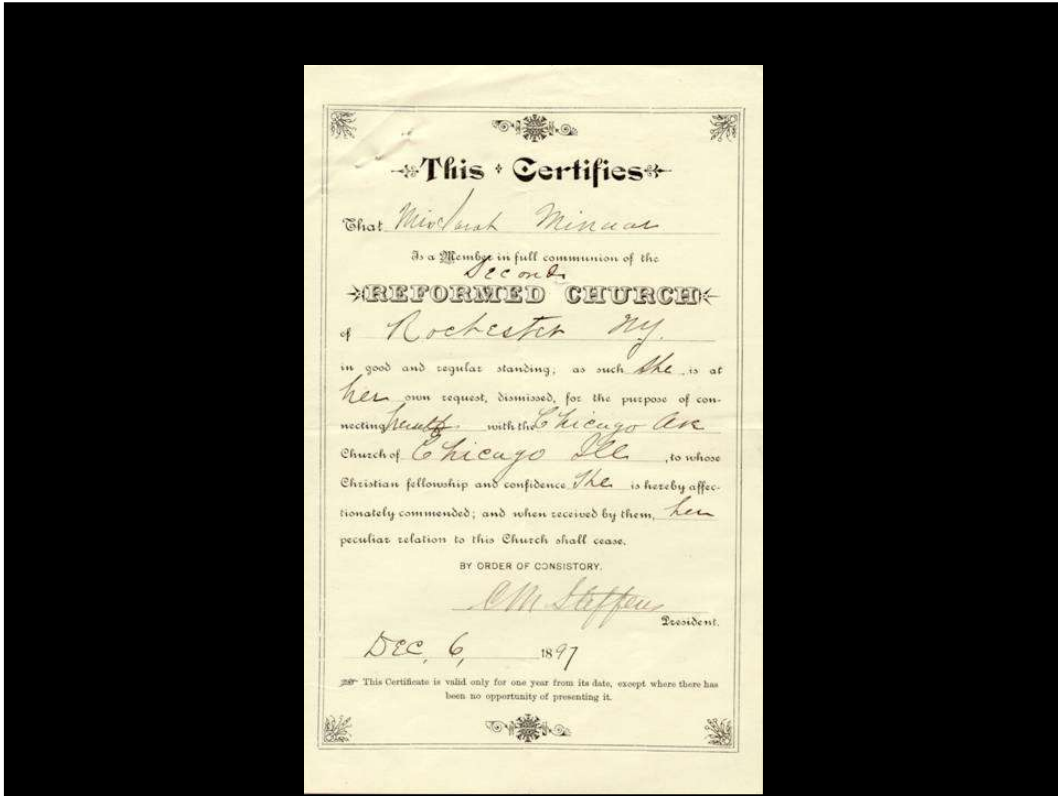 This Certifies
That Miss Sarah Minaar
Is a Member in full communion of the
Second
REFORMED CHURCH
of Rochester NY.
in good and regular standing; as such She is at
her own request, dismissed, for the purpose of con-
necting herself with the Chicago Ave
Church of Chicago Ill , to whose
Christian fellowship and confidence She is hereby affec-
tionately commended; and when received by them, her
peculiar relation to this Church shall cease.
BY ORDER OF CONSISTORY.
C M Steffens
President.
DEC, 6, 1897
This Certificate is valid only for one year from its date, except where there has
been no opportunity of presenting it.